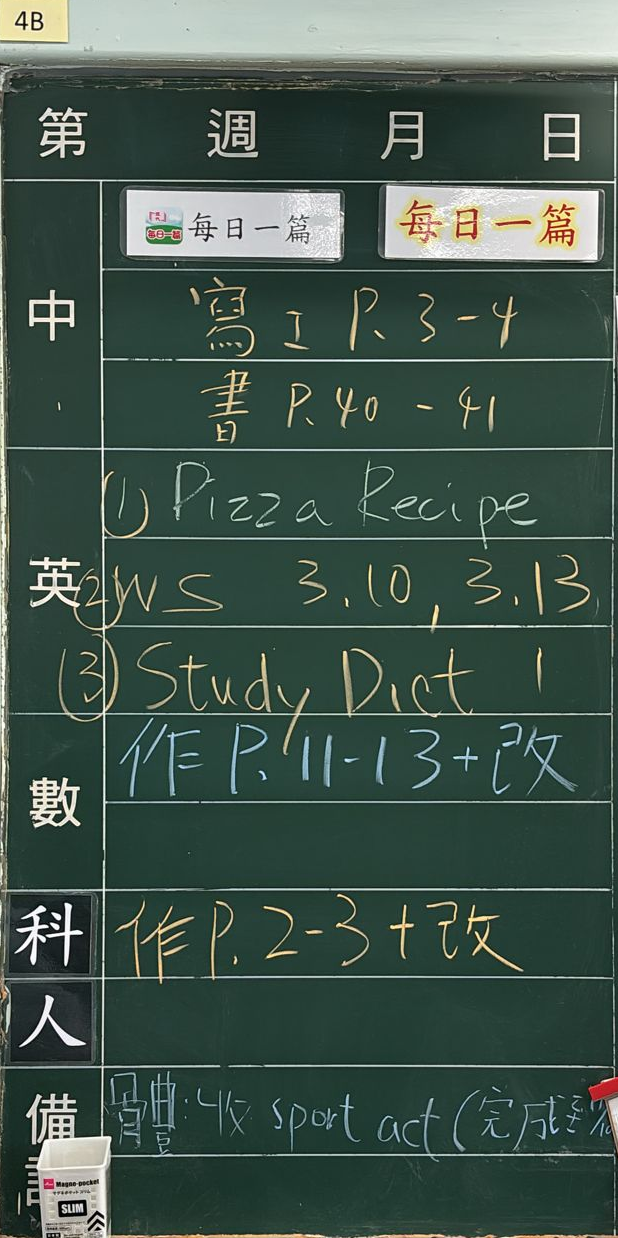 4B
第 週 月 日
每日一篇 每日一篇
中
寫工 P. 3-4
書 P. 40 - 41
英
① Pizza Recipe
② WS 3.10, 3.13
③ Study Dict 1
數
作 P. 11-13+改
科
作 P. 2-3+改
人
備
體：收 sport act (完成
Magno-pocket
SLIM